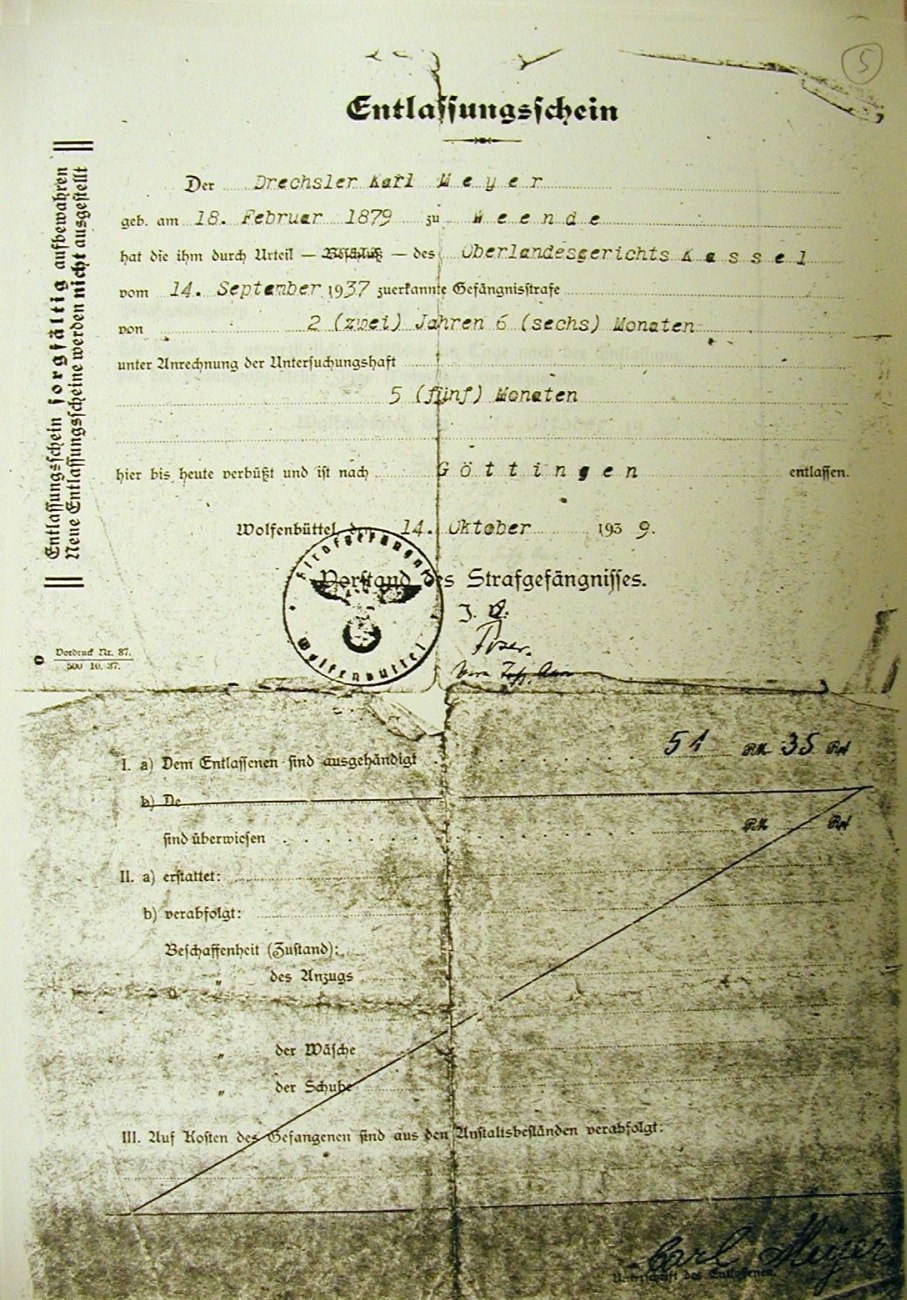 5
Entlassungsschein
Entlassungsschein sorgfältig aufbewahren
Neue Entlassungsscheine werden nicht ausgestellt
Der Drechsler Karl Meyer
geb. am 18. Februar 1879 zu Weende
hat die ihm durch Urteil — Beschluß — des Oberlandesgerichts Kassel
vom 14. September 1937 zuerkannte Gefängnisstrafe
von 2 (zwei) Jahren 6 (sechs) Monaten
unter Anrechnung der Untersuchungshaft
5 (fünf) Monaten
hier bis heute verbüßt und ist nach Göttingen entlassen.
Wolfenbüttel, den 14. Oktober 1939.
Vorstand des Strafgefängnisses.
Strafgefängnis
Wolfenbüttel
Vordruck Nr. 87.
500 10. 37.
I. a) Dem Entlassenen sind ausgehändigt 51 RM 35 Rpf
b) De
sind überwiesen RM Rpf
II. a) erstattet:
b) verabfolgt:
Beschaffenheit (Zustand):
„ des Anzugs
„ der Wäsche
„ der Schuhe
III. Auf Kosten des Gefangenen sind aus den Anstaltsbeständen verabfolgt:
Carl Meyer
Unterschrift des Entlassenen.